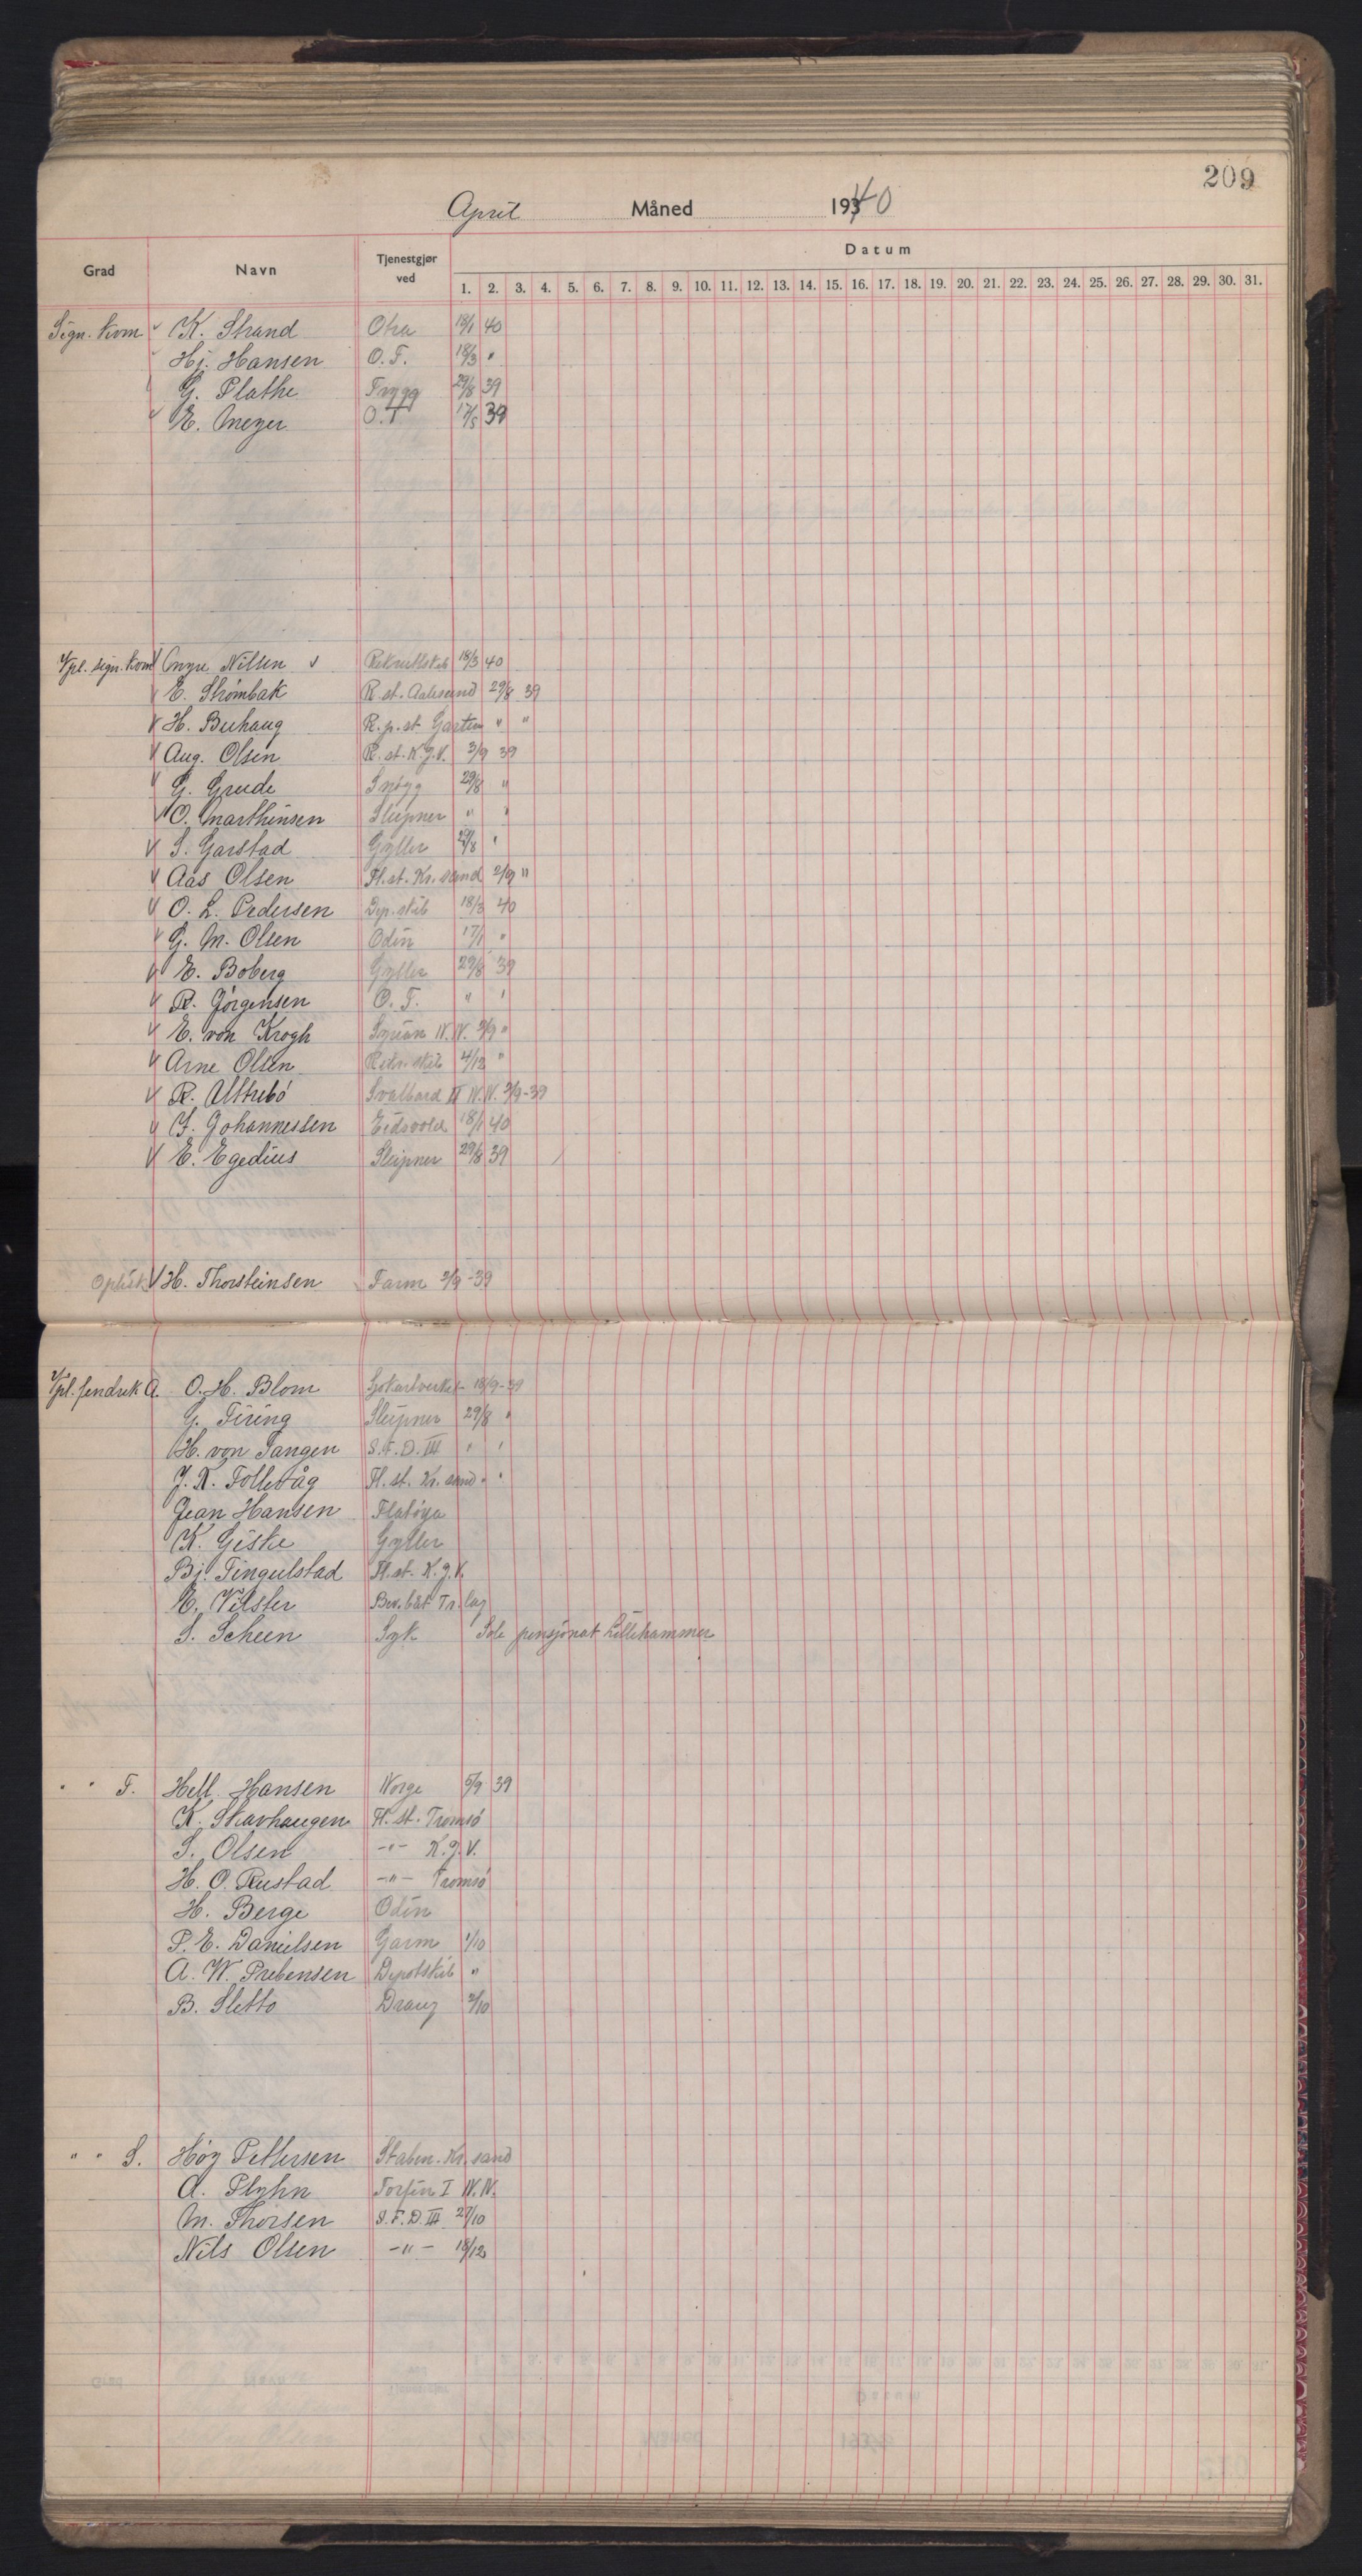 209
April Måned 193 40
Grad Navn Tjenestgjør ved Datum
1. 2. 3. 4. 5. 6. 7. 8. 9. 10. 11. 12. 13. 14. 15. 16. 17. 18. 19. 20. 21. 22. 23. 24. 25. 26. 27. 28. 29. 30. 31.
Sign. kvm K. Strand Otra 18/1 40
Hj. Hansen O.T. 18/3 "
G. Plathe Trygg 29/8 39
E. Meyer O.T 39
Vpl. sign. kvm Nilsen Rekruttskib 18/3 40
E. Strømbak R.st. Aalesund 29/8 39
H. Buhaug R.p.st. Garten " "
Aug. Olsen R.st. K.J.V. 3/9 39
G. Grude Snøgg 29/8 "
O. Marthinsen Sleipner " "
S. Garstad Gyller 29/8 "
Aas Olsen Fl.st. Kr.sand 2/9 "
O. L. Pedersen Dep.skib 18/3 40
G. M. Olsen Odin 17/1 "
E. Boberg Gyller 29/8 39
R. Jørgensen O.T. " "
E. von Krogh Syrian IV.V. 2/9 "
Arne Olsen skib 4/12 "
R. Alstrebø Svalbard II IV.V. 2/9-39
J. Johannessen Eidsvold 18/1 40
E. Egedius Sleipner 29/8 39
Optisk H. Thorsteinsen Farm 2/9-39
Vpl. fendrik A. O.H. Blom Sjøkartverket 18/9-39
G. Tiring Sleipner 29/8 "
H. von Tangen S.F.D.III " "
J. K. Tollevåg Fl.st. Kr.sand " "
Jean Hansen Flatøya
K. Giske Gyller
Bj. Tingulstad Fl.st. K.J.V.
E. Vilster Bev.båt Tr.lag
S. Scheen Syk Sole pensjonat Lillehammer
" " T. Hell. Hansen Norge 5/9 39
K. Skavhaugen Fl.st. Tromsø
S. Olsen -"- K.J.V.
H. O. Rustad -"- Tromsø
H. Berge Odin
P. E. Danielsen Garm 1/10
A. W. Prebensen Depotskib "
B. Sletto Draug 2/10
" " S. Høy Pettersen Staben. Kr.sand
A. Plyhn Torfin I IV.V.
M. Thorsen S.F.D.III 27/10
Nils Olsen -"- 18/12